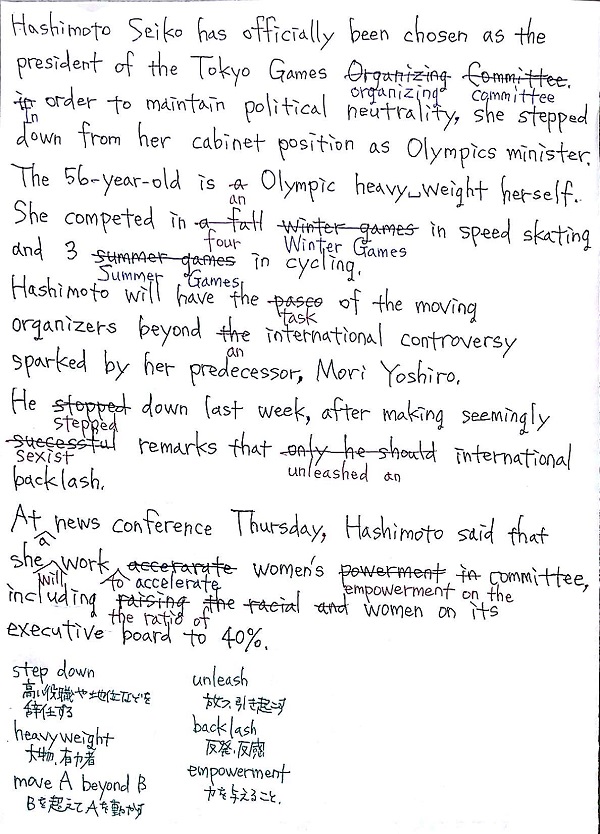 Hashimoto Seiko has officially been chosen as the
president of the Tokyo Games Organizing Committee.
organizing committee
in order to maintain political neutrality, she stepped
In
down from her cabinet position as Olympics minister.
The 56-year-old is a Olympic heavy weight herself.
an
She competed in a fall winter games in speed skating
four Winter Games
and 3 summer games in cycling.
Summer Games
Hashimoto will have the pasco of the moving
task
organizers beyond the international controversy
an
sparked by her predecessor, Mori Yoshiro.
He stopped down last week, after making seemingly
stepped
successful remarks that only he should international
sexist unleashed an
backlash.
At news conference Thursday, Hashimoto said that
a
she work accerarate women's powerment in committee,
will to accelerate empowerment on the
including raising the racial and women on its
the ratio of
executive board to 40%.
step down
高い役職や地位などを
辞任する
heavyweight
大物、有力者
move A beyond B
Bを超えてAを動かす
unleash
放つ、引き起こす
backlash
反発、反感
empowerment
力を与えること、